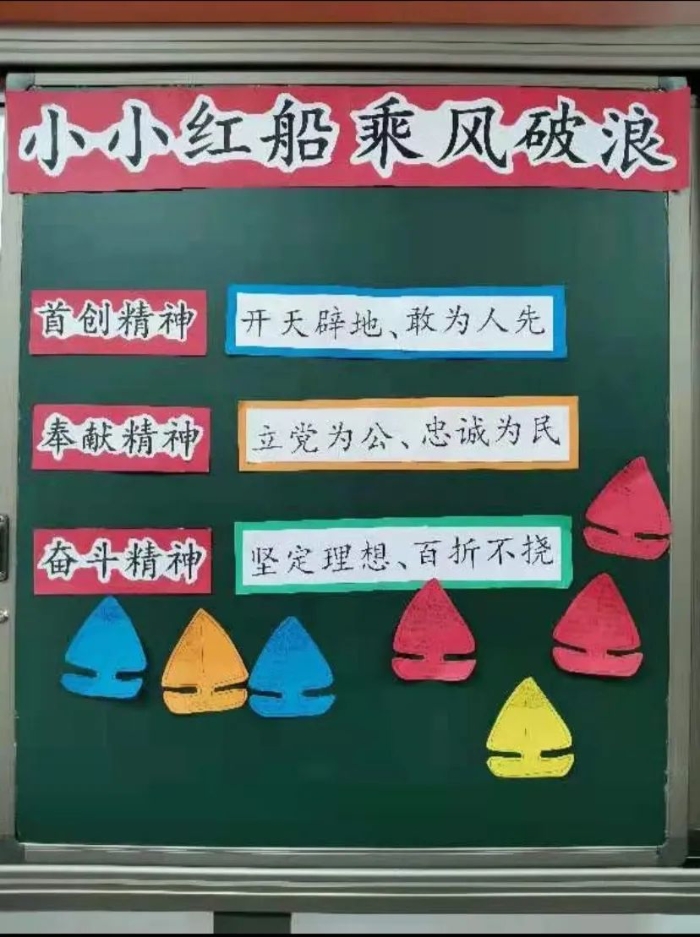 小小红船乘风破浪
首创精神 开天辟地、敢为人先
奉献精神 立党为公、忠诚为民
奋斗精神 坚定理想、百折不挠